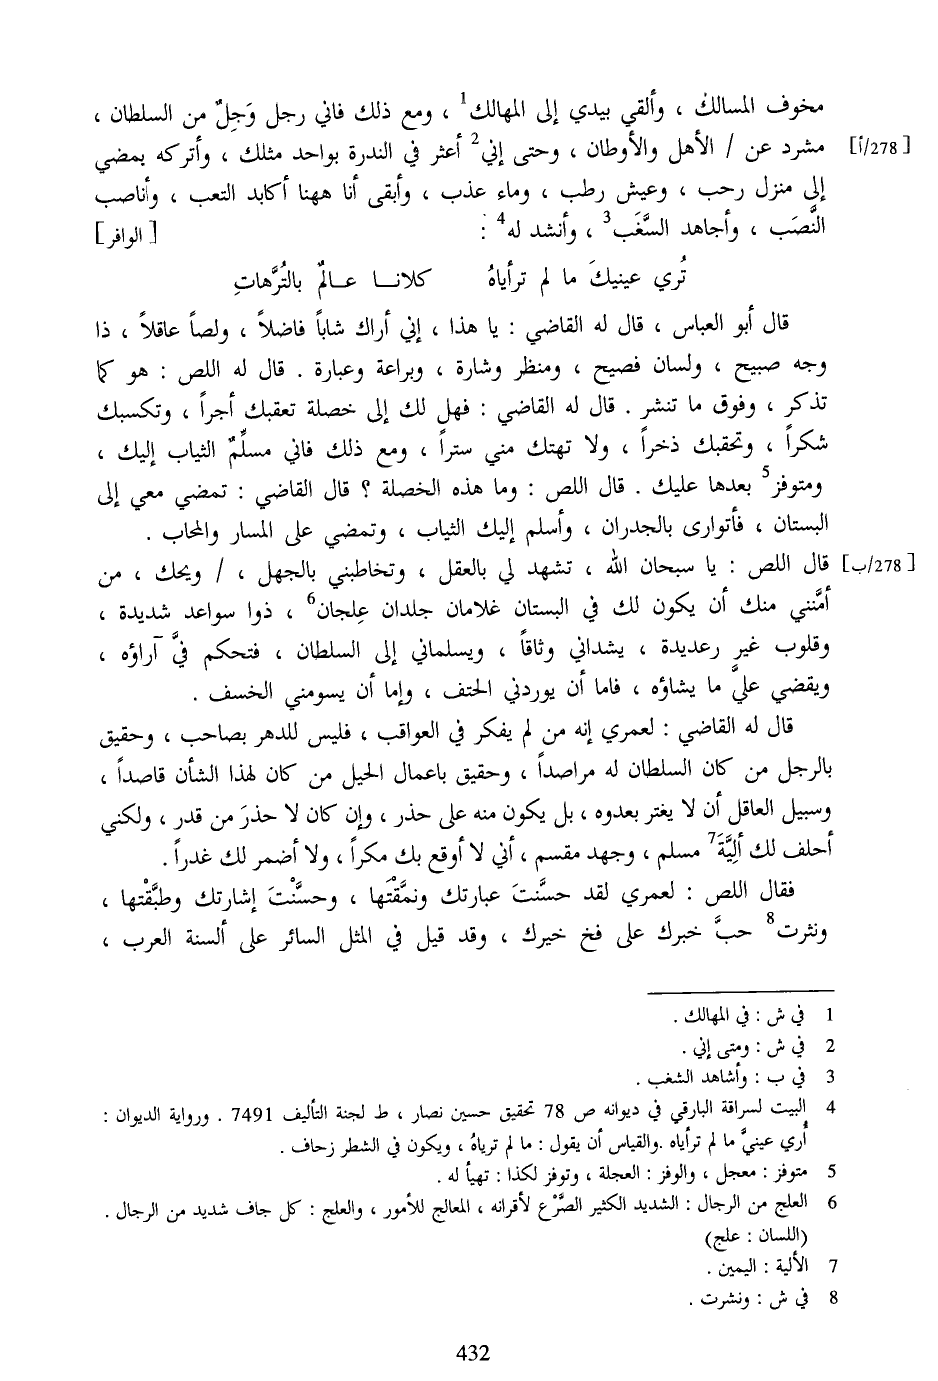 مخوف المسالك ، وألقي بيدي إلى المهالك1 ، ومع ذلك فاني رجل وَجِلٌ من السلطان ،
[278/أ] مشرد عن / الأهل والأوطان ، وحتى إني2 أعثر في الندرة بواحد مثلك ، وأتركه يمضي
إلى منزل رحب ، وعيش رطب ، وماء عذب ، وأبقى أنا ههنا أكابد التعب ، وأناصب
النَّصَب ، وأجاهد السَّغَب3 ، وأنشد له4 : [ الوافر ]
تُري عينيكَ ما لم ترأياهُ كلانــا عــالمٌ بالتُرَّهاتِ
قال أبو العباس ، قال له القاضي : يا هذا ، إني أراك شاباً فاضلاً ، ولصاً عاقلاً ، ذا
وجه صبيح ، ولسان فصيح ، ومنظر وشارة ، وبراعة وعبارة . قال له اللص : هو كما
تذكر ، وفوق ما تنشر . قال له القاضي : فهل لك إلى خصلة تعقبك أجراً ، وتكسبك
شكراً ، وتحقبك ذخراً ، ولا تهتك مني ستراً ، ومع ذلك فاني مسلِّمٌ الثياب إليك ،
ومتوفز5 بعدها عليك . قال اللص : وما هذه الخصلة ؟ قال القاضي : تمضي معي إلى
البستان ، فأتوارى بالجدران ، وأسلم إليك الثياب ، وتمضي على المسار والمحاب .
[278/ب] قال اللص : يا سبحان الله ، تشهد لي بالعقل ، وتخاطبني بالجهل ، / ويحك ، من
أمَّنني منك أن يكون لك في البستان غلامان جلدان عِلجان6 ، ذوا سواعد شديدة ،
وقلوب غير رعديدة ، يشداني وثاقاً ، ويسلماني إلى السلطان ، فتحكم فيَّ آراؤه ،
ويقضي عليَّ ما يشاؤه ، فاما أن يوردني الحتف ، وإما أن يسومني الخسف .
قال له القاضي : لعمري إنه من لم يفكر في العواقب ، فليس للدهر بصاحب ، وحقيق
بالرجل من كان السلطان له مراصداً ، وحقيق باعمال الحيل من كان لهذا الشأن قاصداً ،
وسبيل العاقل أن لا يغتر بعدوه ، بل يكون منه على حذر ، وإن كان لا حذرَ من قدر ، ولكني
أحلف لك ألِيَّةَ7 مسلم ، وجهد مقسم ، أني لا أوقع بك مكراً ، ولا أضمر لك غدراً .
فقال اللص : لعمري لقد حسَّنتَ عبارتك ونمَّقْتَها ، وحسَّنْتَ إشارتك وطبَّقْتها ،
ونثرت8 حبَّ خبرك على فخ خيرك ، وقد قيل في المثل السائر على ألسنة العرب ،
1 في ش : في المهالك .
2 في ش : ومتى إني .
3 في ب : وأشاهد الشغب .
4 البيت لسراقة البارقي في ديوانه ص 78 تحقيق حسين نصار ، ط لجنة التأليف 7491 . ورواية الديوان :
أُري عينيَّ ما لم ترأياه .والقياس أن يقول : ما لم ترياهُ ، ويكون في الشطر زحاف .
5 متوفز : معجل ، والوفز : العجلة ، وتوفز لكذا : تهيأ له .
6 العلج من الرجال : الشديد الكثير الصَّرْع لأقرانه ، المعالج للأمور ، والعلج : كل جاف شديد من الرجال .
(اللسان : علج)
7 الألية : اليمين .
8 في ش : ونشرت .
432